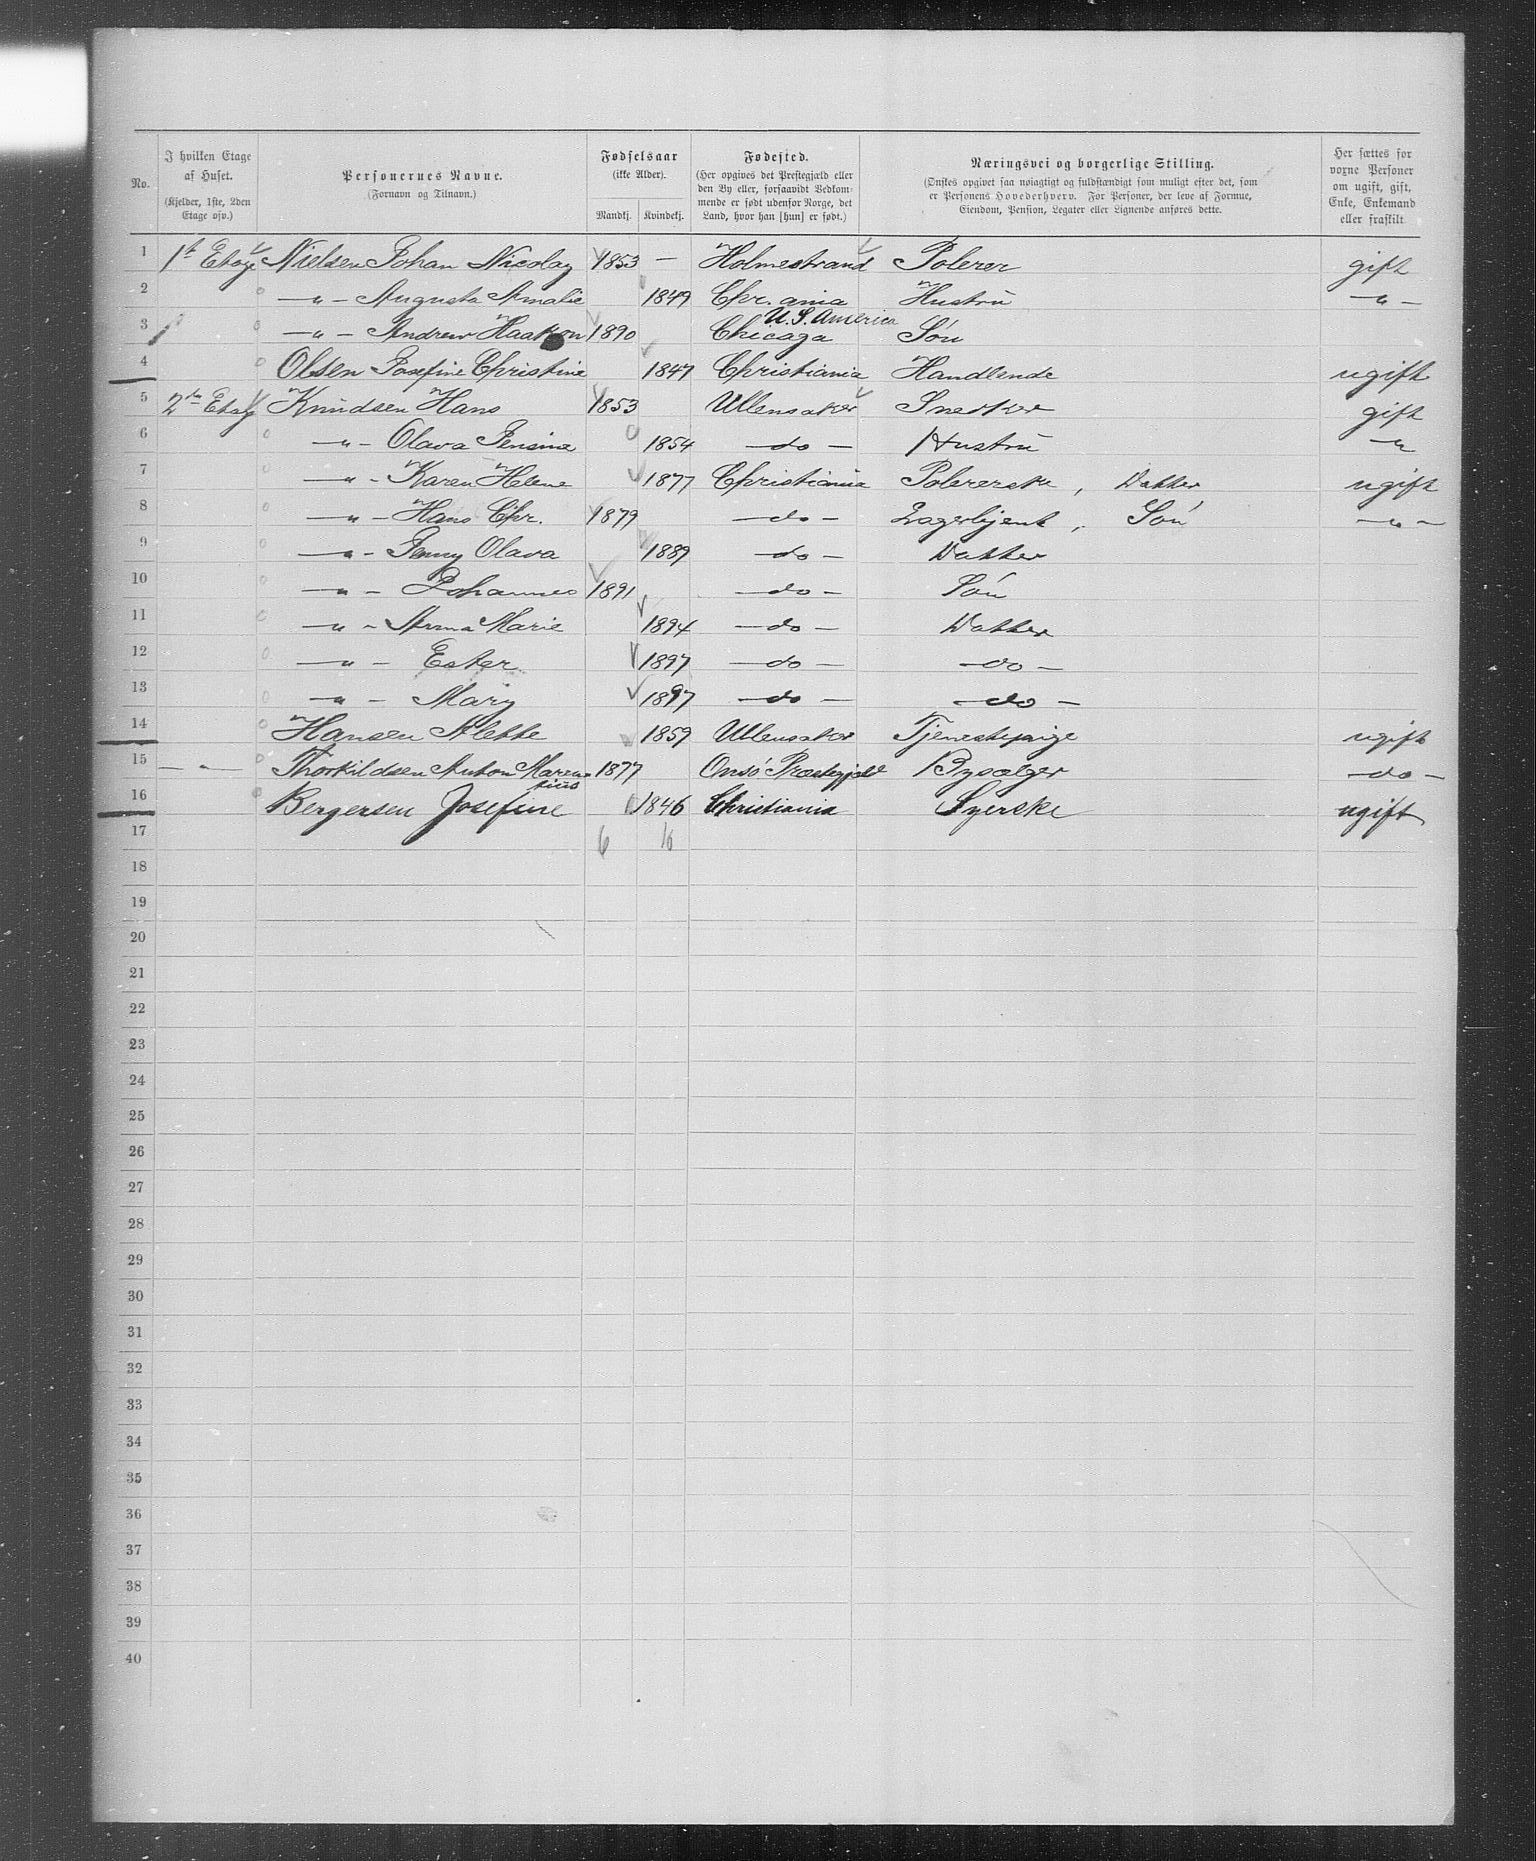 No.
I hvilken Etage af Huset. (Kjelder, 1ste, 2den Etage osv.)
Personernes Navne. (Fornavn og Tilnavn.)
Fødselsaar (ikke Alder). Mandkj. Kvindekj.
Fødested. (Her opgives det Prestegjæld eller den By eller, forsaavidt Vedkommende er født udenfor Norge, det Land, hvor han [hun] er født.)
Næringsvei og borgerlige Stilling. (Ønskes opgivet saa nøiagtigt og fuldstændigt som muligt efter det, som er Personens Hovederhverv. For Personer, der leve af Formue, Eiendom, Pension, Legater eller Lignende anføres dette.
Her sættes for voxne Personer om ugift, gift, Enke, Enkemand eller fraskilt
1 1st Etage Nielsen Johan Nicolay 1853 — Holmestrand Polerer gift
2 —„— Augusta Amalie 1849 Chr.ania Hustru —„—
3 —„— Andrew Haakon 1890 Chicaga U.S. America Søn
4 Olsen Josefine Christine 1847 Christiania Handlende ugift
5 2den Etage Knudsen Hans 1853 Ullensaker Snedker gift
6 —„— Olava Jensine 1854 —do— Hustru —„
7 —„— Karen Helene 1877 Christiania Polererske, Datter ugift
8 —„— Hans Chr. 1879 —do— Lagerbjent, Søn —„—
9 —„— Jenny Olava 1889 —do— Datter
10 —„— Johannes 1891 —do— Søn
11 —„— Anna Marie 1894 —do— Datter
12 —„— Ester 1897 —do— —do—
13 —„— Mary 1897 —do— —do—
14 Hansen Alette 1859 Ullensaker Tjenestepige ugift
15 —„— Thorkildsen Anton Marensius 1877 Onsø Præstegjæld Bysælger —do—
16 Bergersen Josefine 1846 Christiania Syerske ugift
17 6 10
18
19
20
21
22
23
24
25
26
27
28
29
30
31
32
33
34
35
36
37
38
39
40